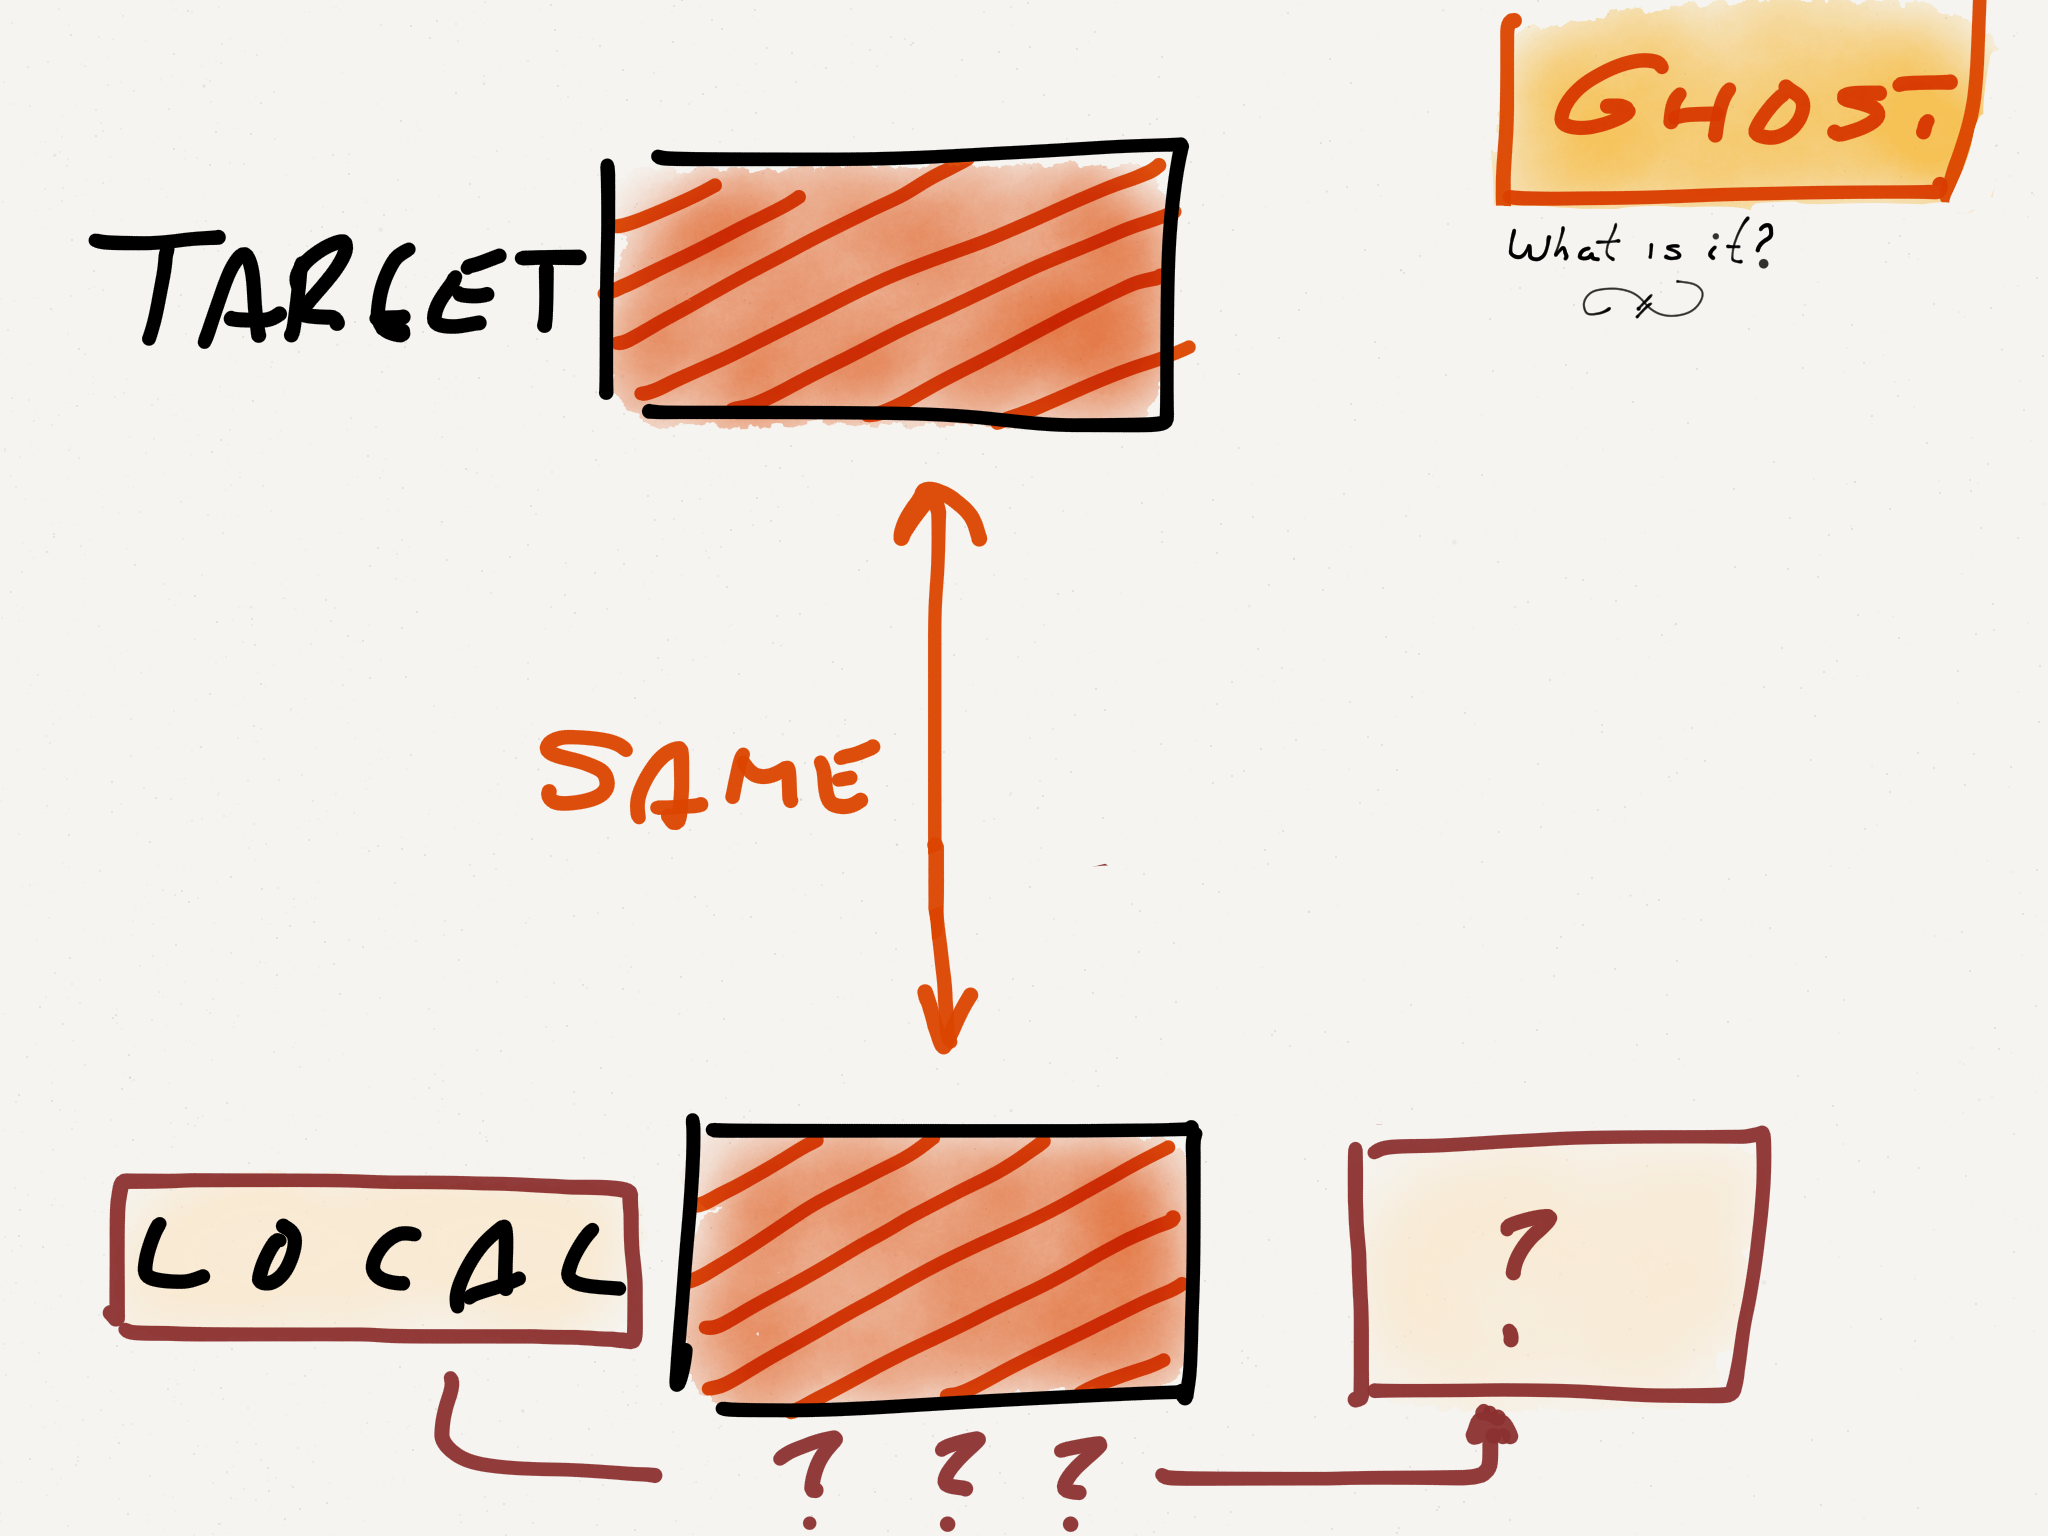 GHOST
What is it?
TARGET
SAME
LOCAL
?
? ? ?